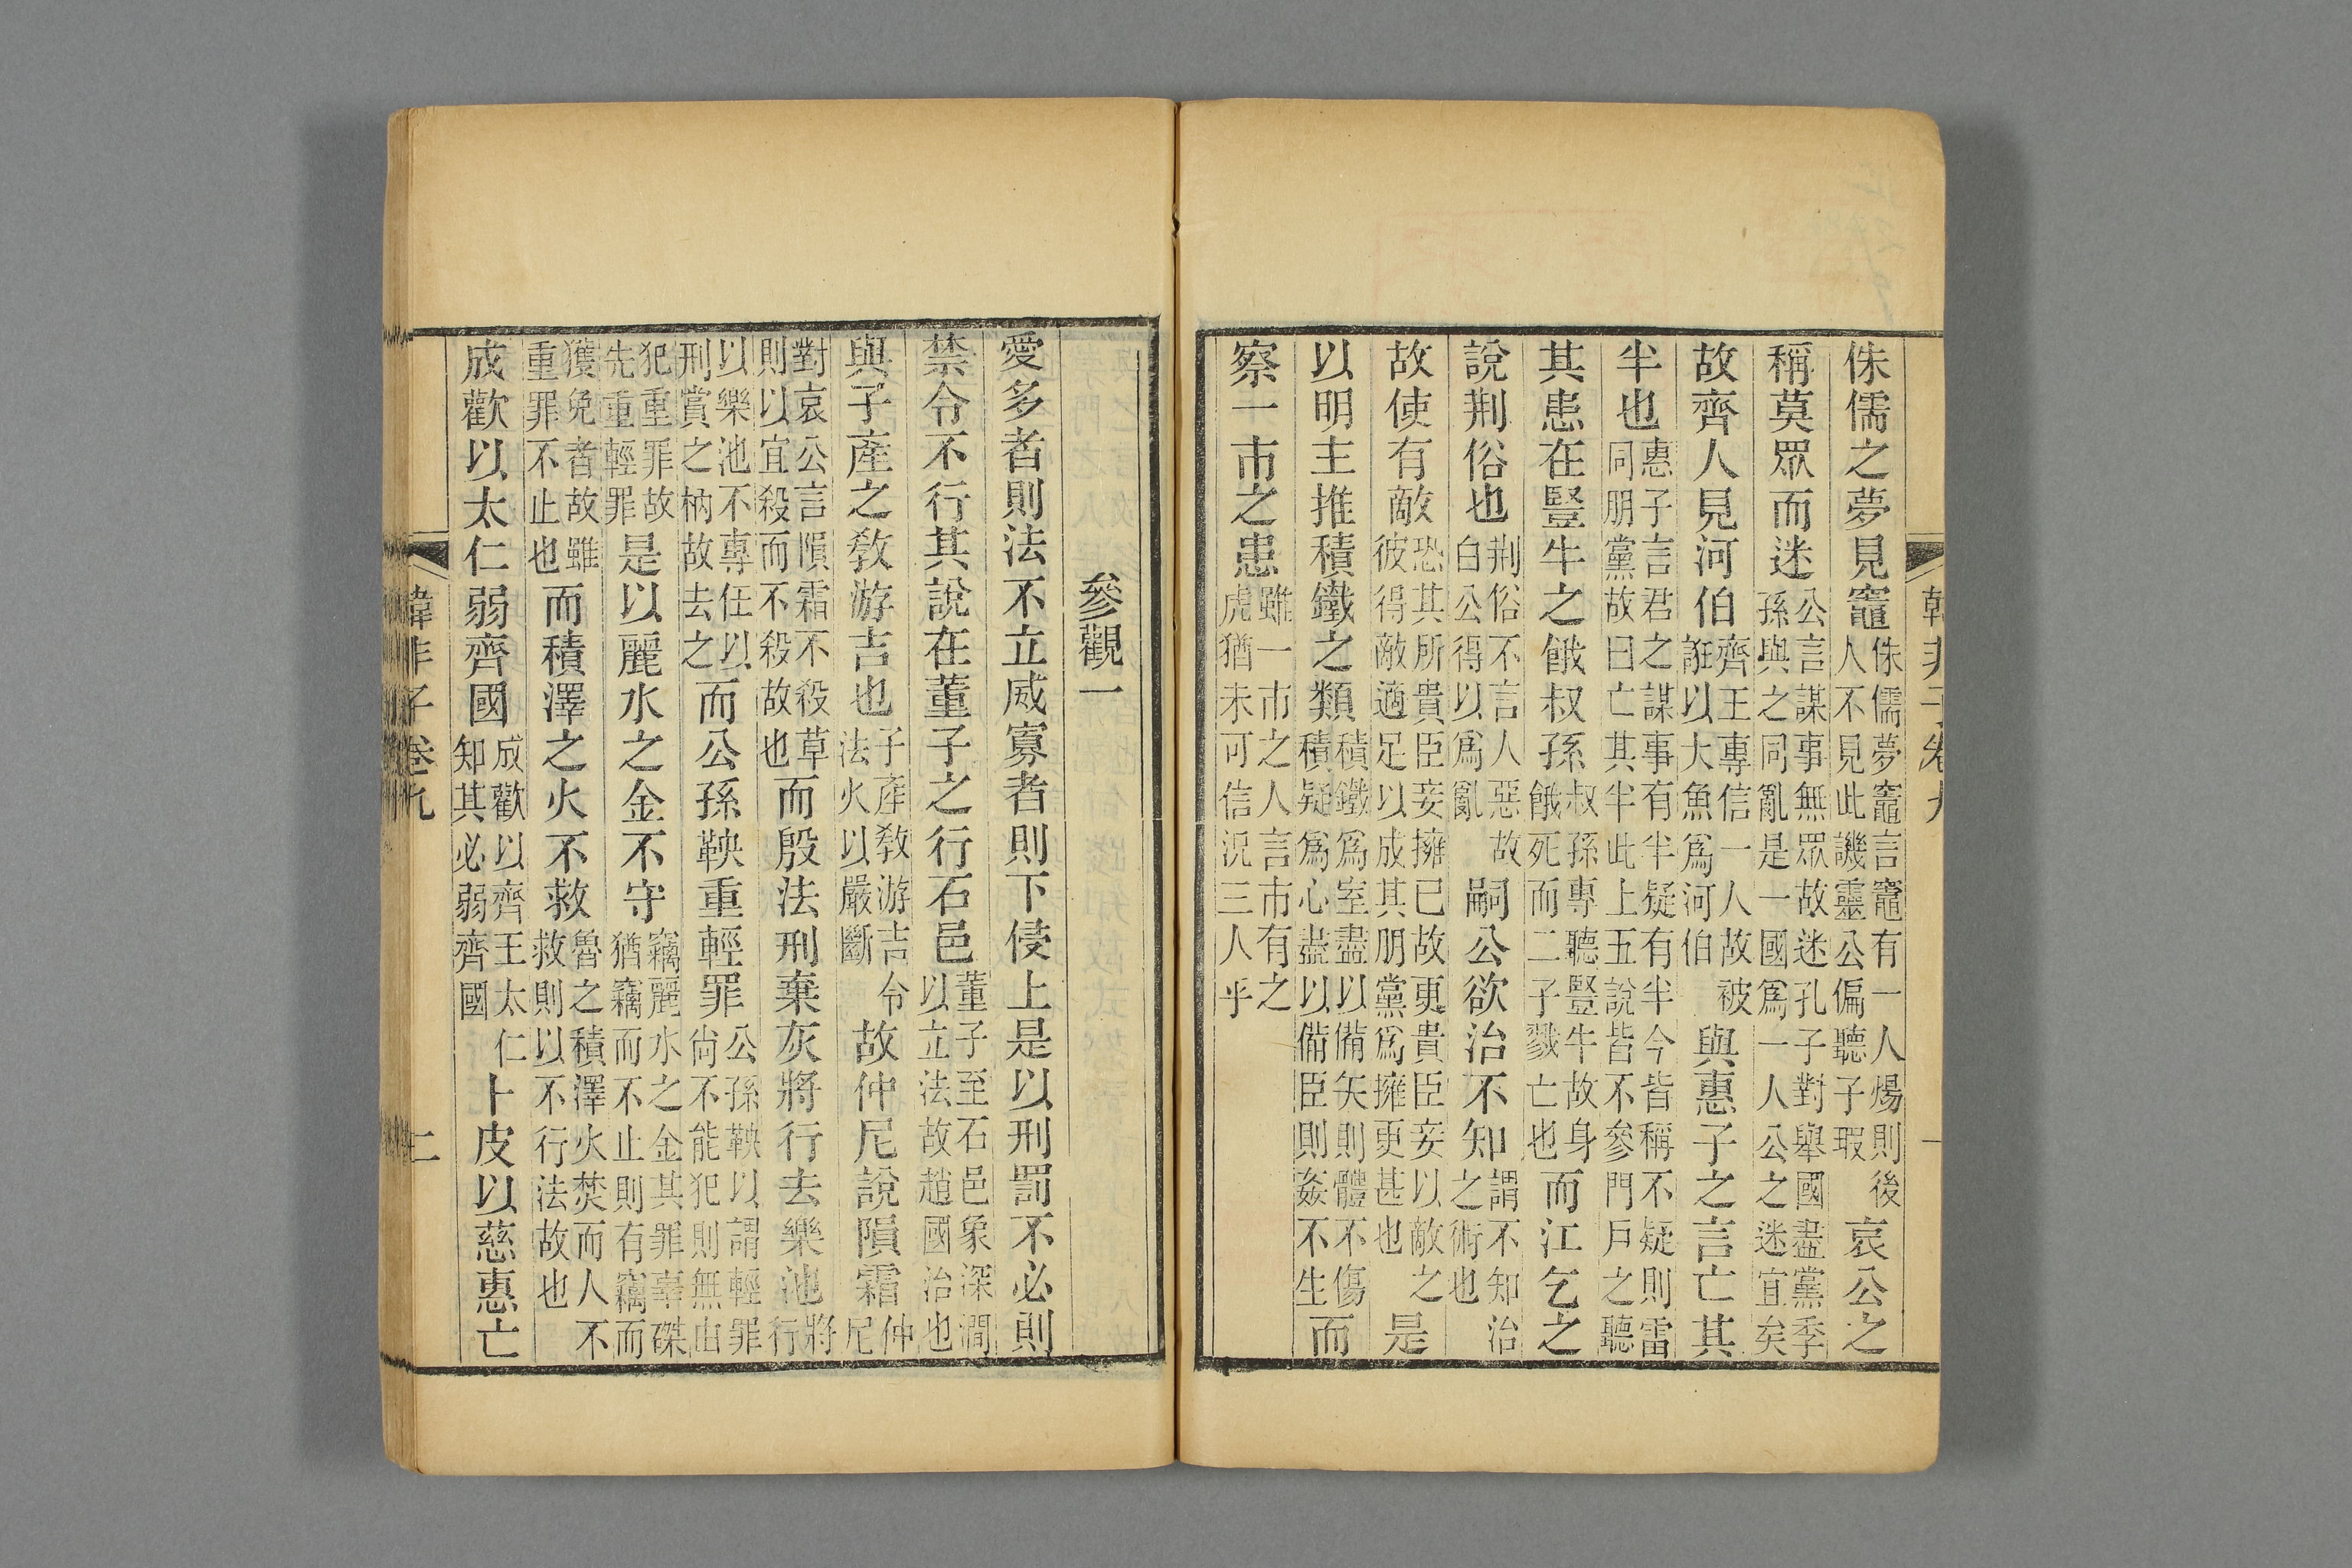 韓非子卷九 一
侏儒之夢見竈侏儒夢竈言竈有一人煬則後人不見此譏靈公偏聽子瑕哀公之
稱莫眾而迷公言謀事無眾故迷孔子對舉國盡黨季孫與之同亂是一國爲一人公之迷宜矣
故齊人見河伯齊王專信一人故被誑以大魚爲河伯與惠子之言亡其
半也惠子言君之謀事有半疑有半今皆稱不疑則雷同朋黨故曰亡其半此上五說皆不參門戶之聽
其患在豎牛之餓叔孫叔孫專聽豎牛故身餓死而二子戮亡也而江乞之
說荆俗也荆俗不言人惡故白公得以爲亂嗣公欲治不知謂不知治之術也
故使有敵恐其所貴臣妾擁已故更貴臣妾以敵之彼得敵適足以成其朋黨爲擁更甚也是
以明主推積鐵之類積鐵爲室盡以備矢則體不傷積疑爲心盡以備臣則姦不生而
察一市之患雖一市之人言市有之虎猶未可信況三人乎
參觀一
愛多者則法不立威寡者則下侵上是以刑罰不必則
禁令不行其說在董子之行石邑董子至石邑象深澗以立法故趙國治也
與子產之敎游吉也子產敎游吉令法火以嚴斷故仲尼說隕霜仲尼
對哀公言隕霜不殺草則以宜殺而不殺故也而殷法刑棄灰將行去樂池將行
以樂池不專任以刑賞之柄故去之而公孫鞅重輕罪公孫鞅以謂輕罪尙不能犯則無由
犯重罪故先重輕罪是以麗水之金不守竊麗水之金其罪辜磔猶竊而不止則有竊而
獲免者故雖重罪不止也而積澤之火不救魯之積澤火焚而人不救則以不行法故也
成歡以太仁弱齊國成歡以齊王太仁知其必弱齊國卜皮以慈惠亡
韓非子卷九 二